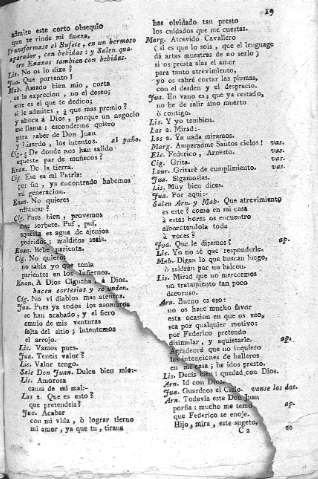 19
admite este corto obsequio
que te rinde mi fineza.
Transformase el Bufete, en un hermoso
aparador, con bebidas: y Salen qua-
tro Enanos tambien con bebidas.
Lis. No os lo dixe?
Jua. Qué portento!
Mab. Amado bien mio, corta
es la expresion, no el deseo;
este es el que te dedico;
si le admites, ¿ que mas premio?
y ahora á Dios, porque un negocio
me llama: escondernos quiero
para saber de Don Juan
y Lisardo, los intentos. al paño.
Cig. ¿ De donde nos han salido
aqueste par de muñecos?
Enan. De la tierra.
Cig. Esa es mi Patria:
por fin, ya encontrado habemos
mi generacion.
Enan. No quieres
refrescar?
Cig. Pues bien, provemos
ese sorbete. Puf, puf,
aquesta es agua de
podrido, maldito sea.
Enan. Bebe, pariente.
Cig. No quiero
no sabía yo que tenía
parientes en los Infiernos.
Enan. A Dios Cigueña. á Dios.
hacen cortesias y se unden.
Cig. No vi diablos mas atentos.
Jua. Pues ya todos los asombros
se han acabado, y el fiero
cenio de mis venturas
falta del sitio; intentemos
el arrojo.
Lis. Vamos pues.
Jua. Teneis valor?
Lis. Valor tengo.
Sale Don Juan. Dulce bien mio:-
Lis. Amorosa
causa de mi mal:-
Las 2. Que es esto?
que pretendeis?
Jua. Acabar
con mi vida, ó lograr tierno
mi amor, ya que tu, tirana
has olvidado tan presto
los cuidados que me cuestas.
Marg. Atrevido Cavallero
( si es que lo sois, que el lenguage
dá artas muestras de no serlo)
si os presta alas el amor
para tanto atrevimiento,
yo os sabré cortar las plumas,
con el desden y el desprecio.
Jua. En vano es; que ya cerrado,
no he de salir sino muerto
ó contigo.
Lis. Y yo tambien.
Las 2. Mirad:-
Los 2. Ya nada miramos.
Marg. Amparadme Santos cielos! vas.
Ele. Federico, Arnesto. vas.
Cig. Grita.
Laur. Gritaré de cumplimiento. vas.
Jua. Sigamoslas.
Lis. Muy bien dices.
Jua. Por aqui:-
Salen Arn. y Mab. Que atrevimiento
es este? como en mi casa
á estas horas os encuentro
alborotandola toda
á voces?
Jua. Que le diremos? ap.
Lis. Yo no sé que responderle.
Mab. Digan lo que buscan luego,
ó saldrán por un balcon.
Lis. Mirad que no merecemos
un tratamiento tan poco
decoroso.
Arn. Bueno es eso:
no os hace mucho favor
esta ocasion en que os veo,
sea por qualquier motivo:
por Federico pretendo
disimular, y aquietarle. ap.
Agradeced que no inquiero
las intenciones de hallaros
en mi casa; he idos presto.
Lis. Decis bien: quedad con Dios.
Arn. Id con Dios.
Jua. Guardeos el Cielo. vanse los dos.
Arn. Todavia este Don Juan
porfia: mucho me temo, ap.
que Federico se enoje.
Hijo, mira, este sugeto,
C 2